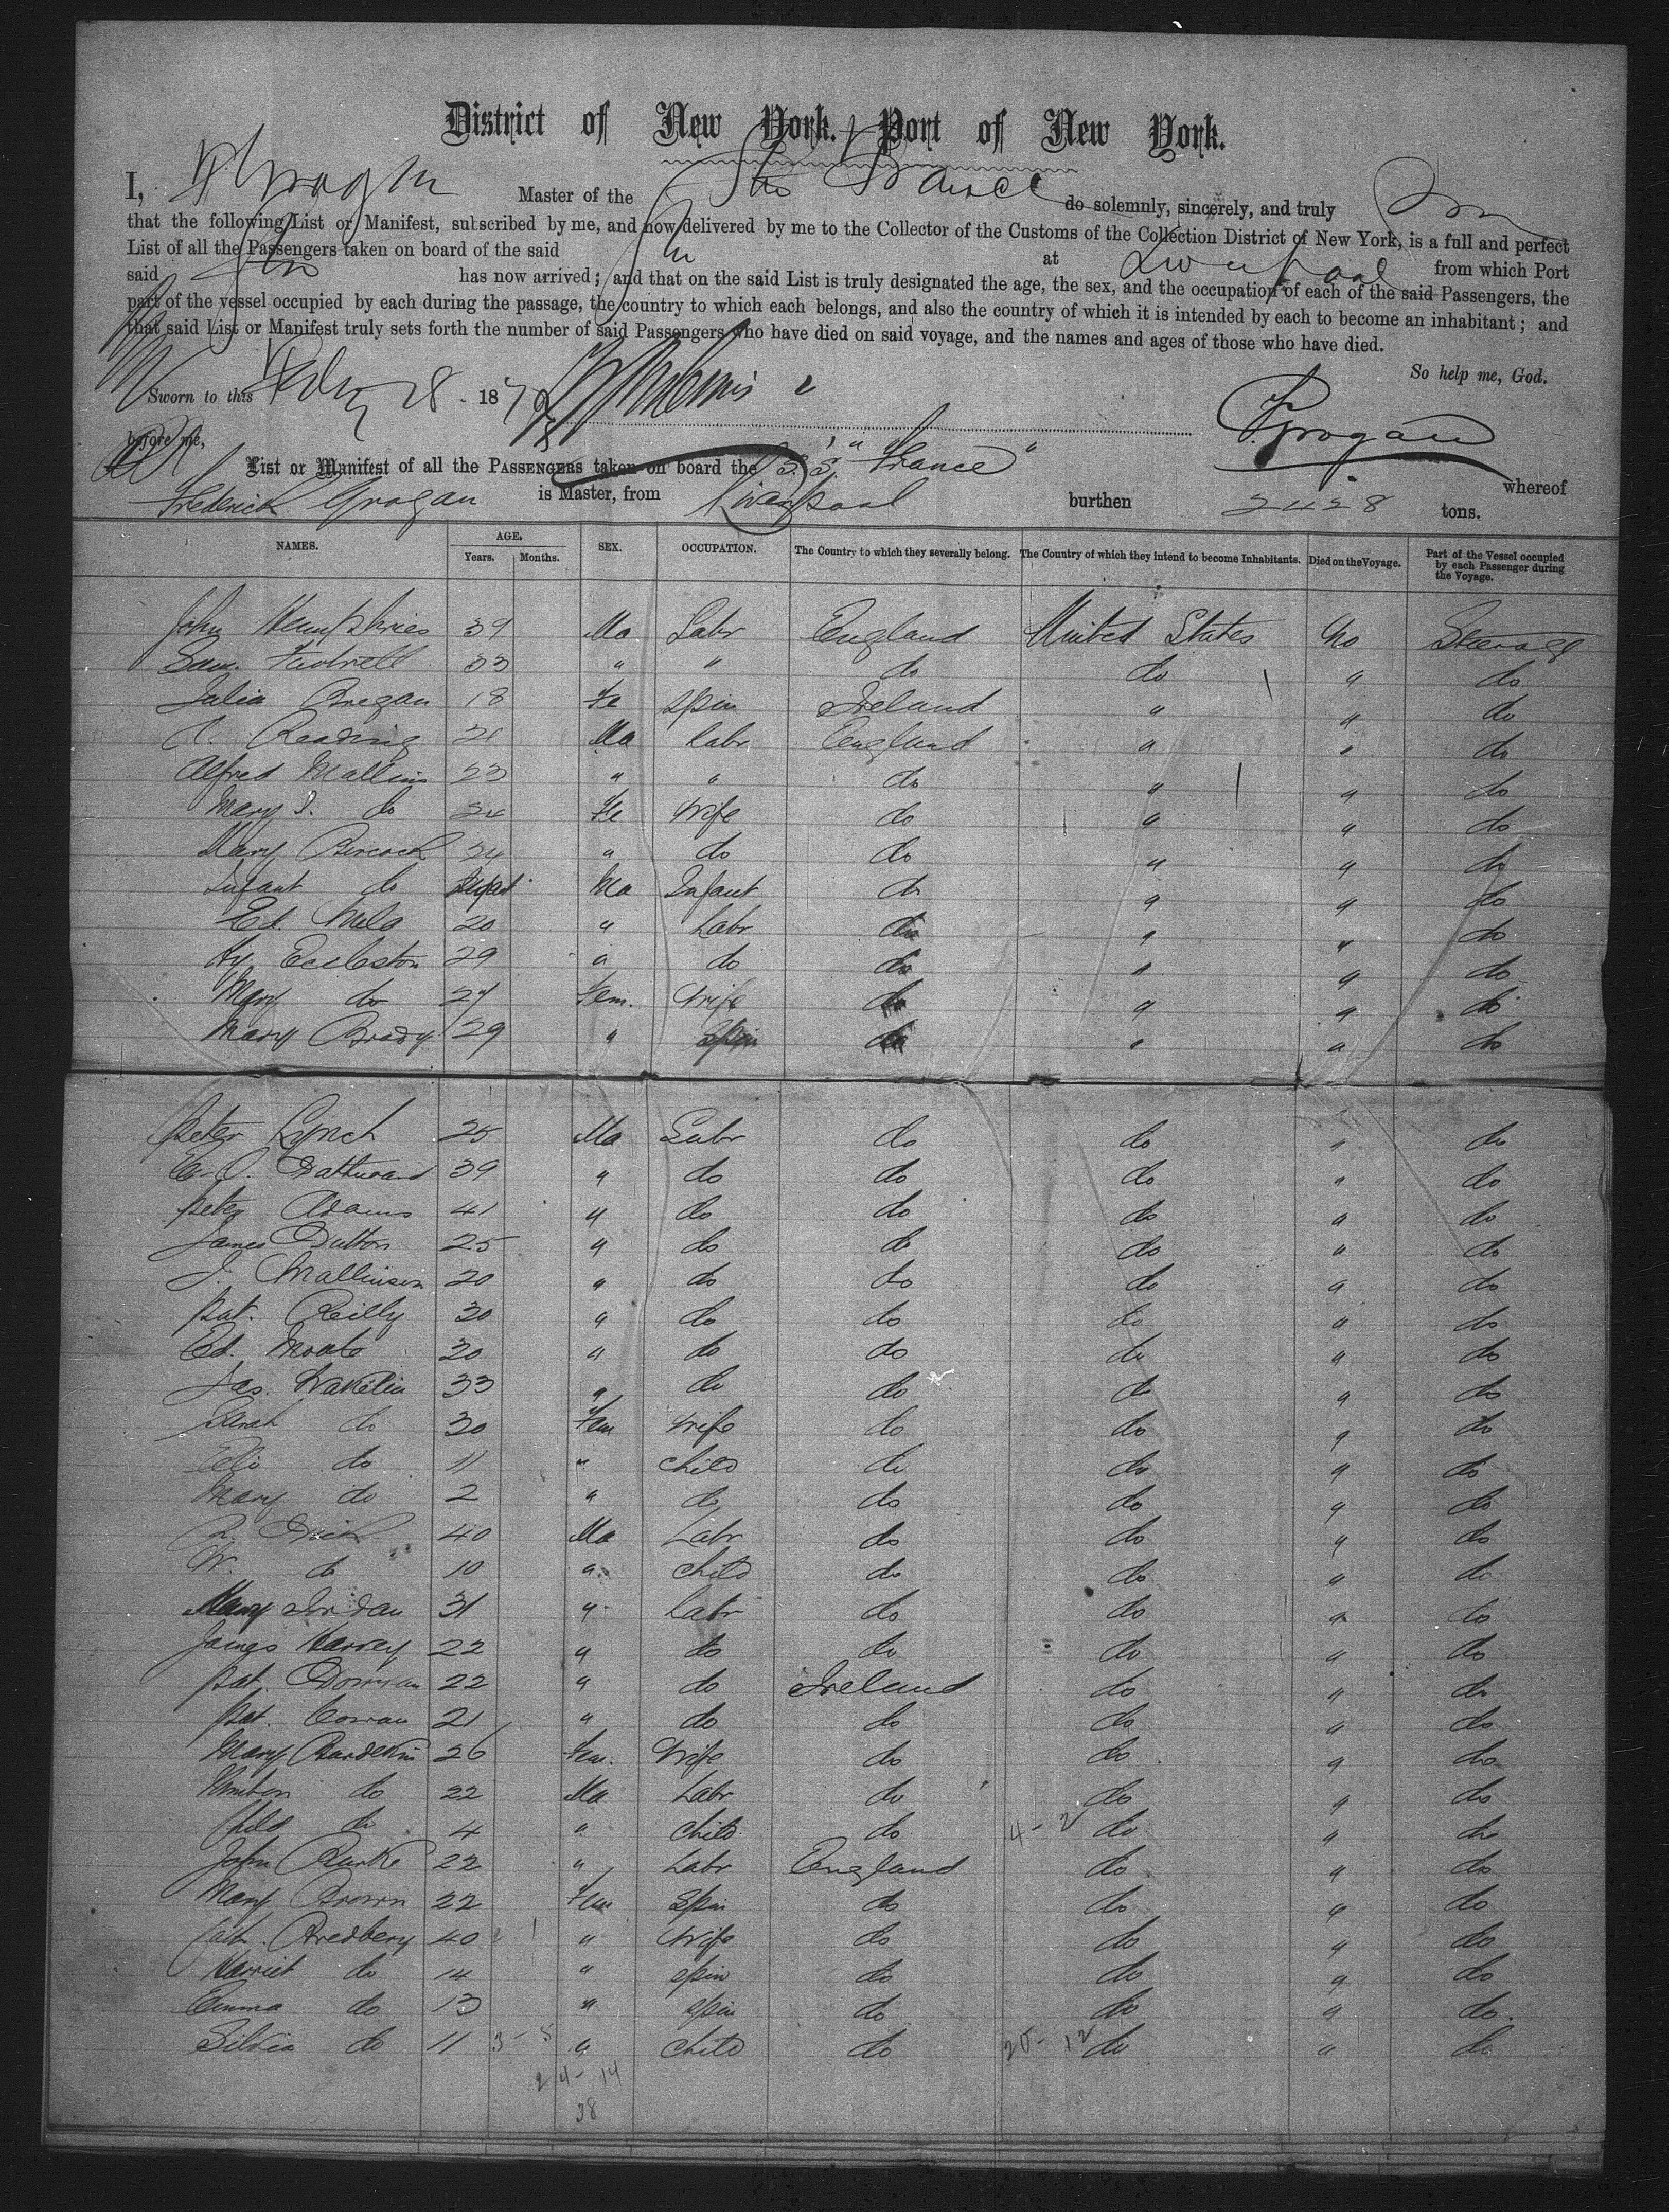 District of New York. Port of New York.
I, F Grogan Master of the Str France do solemnly, sincerely, and truly
that the following List or Manifest, subscribed by me, and now delivered by me to the Collector of the Customs of the Collection District of New York, is a full and perfect
List of all the Passengers taken on board of the said Str at Liverpool from which Port
said Str has now arrived; and that on the said List is truly designated the age, the sex, and the occupation of each of the said Passengers, the
part of the vessel occupied by each during the passage, the country to which each belongs, and also the country of which it is intended by each to become an inhabitant; and
that said List or Manifest truly sets forth the number of said Passengers who have died on said voyage, and the names and ages of those who have died.
So help me, God.
Sworn to this Feby 28 187
before me,
F. Grogan
List or Manifest of all the PASSENGERS taken on board the S.S. "France" whereof
Frederick Grogan is Master, from Liverpool burthen 2428 tons.
NAMES. AGE. SEX. OCCUPATION. The Country to which they severally belong. The Country of which they intend to become Inhabitants. Died on the Voyage. Part of the Vessel occupied by each Passenger during the Voyage.
Years. Months.
John Humphries 39 Ma Labr England United States No Steerage
Sam. 33 " " do do " do
Julia Bregan 18 Fe Spin Ireland " " do
Reading 21 Ma Labr England " " do
Alfred Mallins 23 " " do " " do
Mary J. do 24 Fe Wife do " " do
Mary 24 " do do " " do
Infant do Infant Ma Infant do " " do
Ed. 20 " Labr do " " do
Hy. Eccleston 29 " do do " " do
Mary do 27 Fem. Wife do " " do
Mary Brady 29 " Spin do " " do
Peter Lynch 25 Ma Labr do do " do
39 " do do do " do
Peter Adams 41 " do do do " do
James Dutton 25 " do do do " do
J. Mallinson 20 " do do do " do
Pat. Reilly 30 " do do do " do
Ed. 20 " do do do " do
Jas. Wakelin 33 " do do do " do
Sarah do 30 Fem Wife do do " do
do 11 " Child do do " do
Mary do 2 " do do do " do
40 Ma Labr do do " do
W. do 10 " Child do do " do
Jordan 31 " Labr do do " do
James Harvey 22 " do do do " do
Pat. 22 " do Ireland do " do
Pat. 21 " do do do " do
Mary 26 Fem. Wife do do " do
do 22 Ma Labr do do " do
Child do 4 " Child do 4-2 do " do
John Burke 22 " Labr England do " do
Mary Brown 22 Fem Spin do do " do
Cath. Bredbery 40 " Wife do do " do
Harriet do 14 " Spin do do " do
Emma do 13 " Spin do do " do
Silvia do 11 3-5 " Child do 20-12 do " do
24-14
38